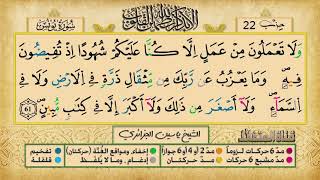 سُورَةُ يُونُسَ
22
وَلَا تَعْمَلُونَ مِنْ عَمَلٍ إِلَّا كُنَّا عَلَيْكُمْ شُهُودًا إِذْ تُفِيضُونَ
فِيهِ وَمَا يَعْزُبُ عَن رَّبِّكَ مِن مِّثْقَالِ ذَرَّةٍ فِي الْأَرْضِ وَلَا فِي
السَّمَاءِ وَلَا أَصْغَرَ مِن ذَٰلِكَ وَلَا أَكْبَرَ إِلَّا فِي كِتَابٍ مُّبِينٍ ٦١
الشيخ ياسين الجزائري
مدّ 6 حركات لزوماً مدّ 2 أو 4 أو 6 جوازاً إخفاء، ومواقع الغُنَّة (حركتان) تفخيم
مدّ مشبع 6 حركات مدّ حركتان إدغام، وما لا يُلفظ قلقلة